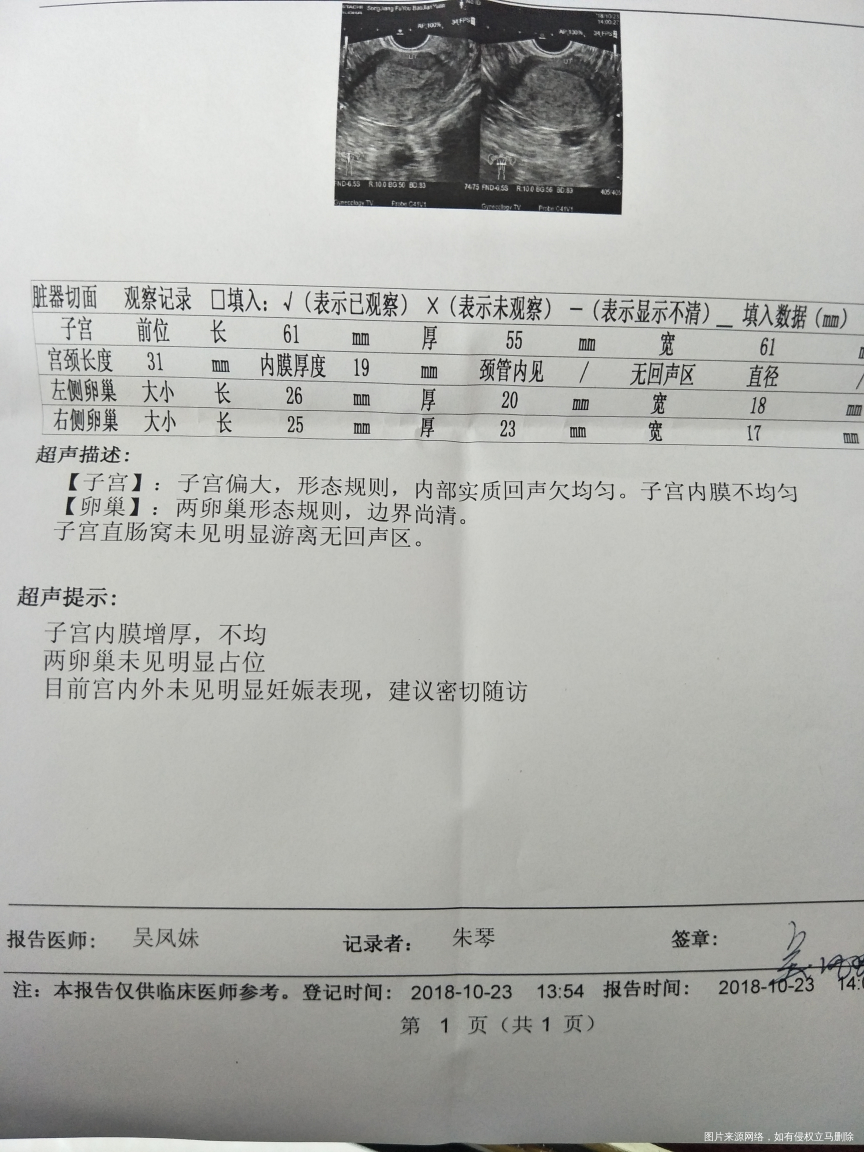 SongJiang FuYou BaoJianYuan
AP:100% 34FPS AP:100% 34FPS
UT UT
FND-6.5S R:10.0 BG:56 BD:83 74/75 FND-6.5S R:10.0 BG:56 BD:83 405/405
Gynecology TV Probe C41V1 Gynecology TV Probe C41V1
脏器切面 观察记录 □填入：√（表示已观察） ×（表示未观察） －（表示显示不清）＿ 填入数据（mm）
子宫 前位 长 61 mm 厚 55 mm 宽 61
宫颈长度 31 mm 内膜厚度 19 mm 颈管内见 / 无回声区 直径 /
左侧卵巢 大小 长 26 mm 厚 20 mm 宽 18 mm
右侧卵巢 大小 长 25 mm 厚 23 mm 宽 17 mm
超声描述：
【子宫】：子宫偏大，形态规则，内部实质回声欠均匀。子宫内膜不均匀
【卵巢】：两卵巢形态规则，边界尚清。
子宫直肠窝未见明显游离无回声区。
超声提示：
子宫内膜增厚，不均
两卵巢未见明显占位
目前宫内外未见明显妊娠表现，建议密切随访
报告医师： 吴凤妹 记录者： 朱琴 签章：
注：本报告仅供临床医师参考。登记时间： 2018-10-23 13:54 报告时间： 2018-10-23
第 1 页（共 1 页）
图片来源网络，如有侵权立马删除